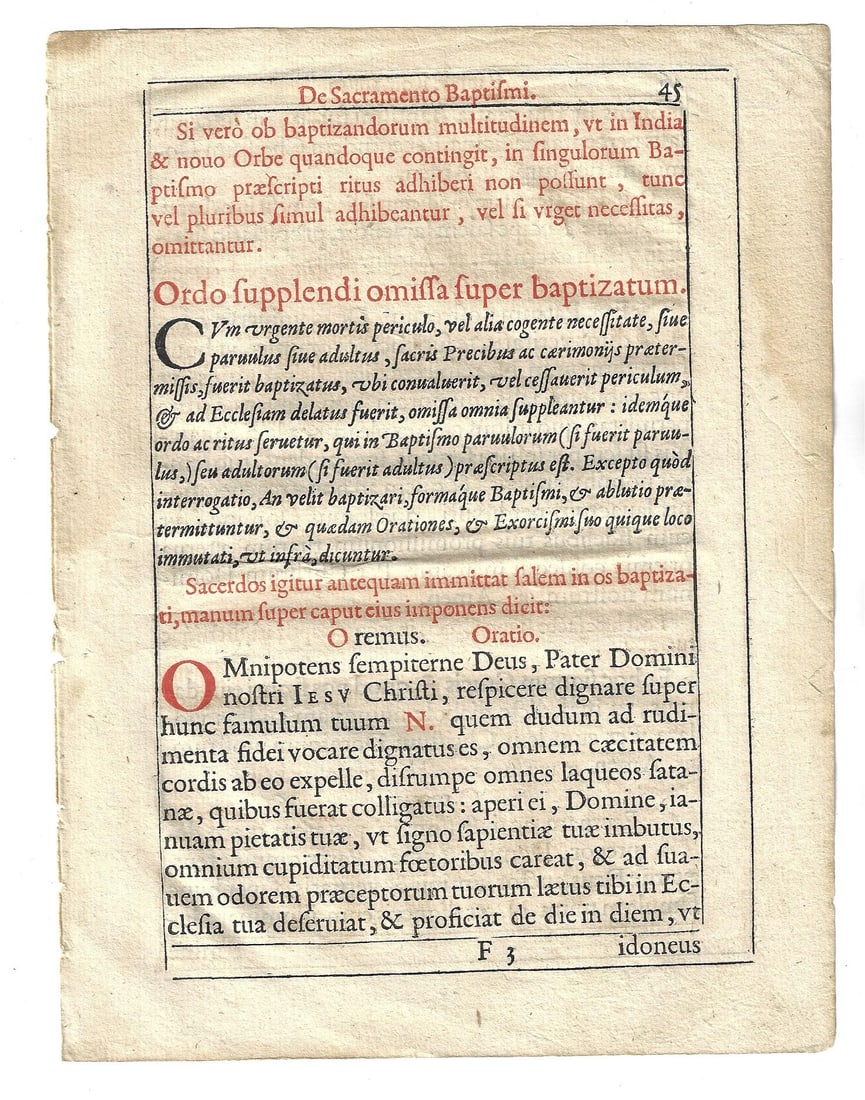 De Sacramento Baptiſmi. 45
Si verò ob baptizandorum multitudinem, vt in India
& nouo Orbe quandoque contingit, in ſingulorum Ba-
ptiſmo præſcripti ritus adhiberi non poſſunt, tunc
vel pluribus ſimul adhibeantur, vel ſi vrget neceſſitas,
omittantur.
Ordo ſupplendi omiſſa ſuper baptizatum.
CVm vrgente mortis periculo, vel alia cogente neceſſitate, ſiue
paruulus ſiue adultus, ſacris Precibus ac cærimonijs præter-
miſſis, fuerit baptizatus, vbi conualuerit, vel ceſſauerit periculum,
& ad Eccleſiam delatus fuerit, omiſſa omnia ſuppleantur: idemq́ue
ordo ac ritus ſeruetur, qui in Baptiſmo paruulorum (ſi fuerit paruu-
lus,) ſeu adultorum (ſi fuerit adultus) præſcriptus eſt. Excepto quòd
interrogatio, An velit baptizari, formaq́ue Baptiſmi, & ablutio præ-
termittuntur, & quædam Orationes, & Exorciſmi ſuo quique loco
immutati, vt infrà, dicuntur.
Sacerdos igitur antequam immittat ſalem in os baptiza-
ti, manum ſuper caput eius imponens dicit:
Oremus. Oratio.
OMnipotens ſempiterne Deus, Pater Domini
noſtri IESV Chriſti, reſpicere dignare ſuper
hunc famulum tuum N. quem dudum ad rudi-
menta fidei vocare dignatus es, omnem cæcitatem
cordis ab eo expelle, diſrumpe omnes laqueos ſata-
næ, quibus fuerat colligatus: aperi ei, Domine, ia-
nuam pietatis tuæ, vt ſigno ſapientiæ tuæ imbutus,
omnium cupiditatum fœtoribus careat, & ad ſua-
uem odorem præceptorum tuorum lætus tibi in Ec-
cleſia tua deſeruiat, & proficiat de die in diem, vt
F 3 idoneus